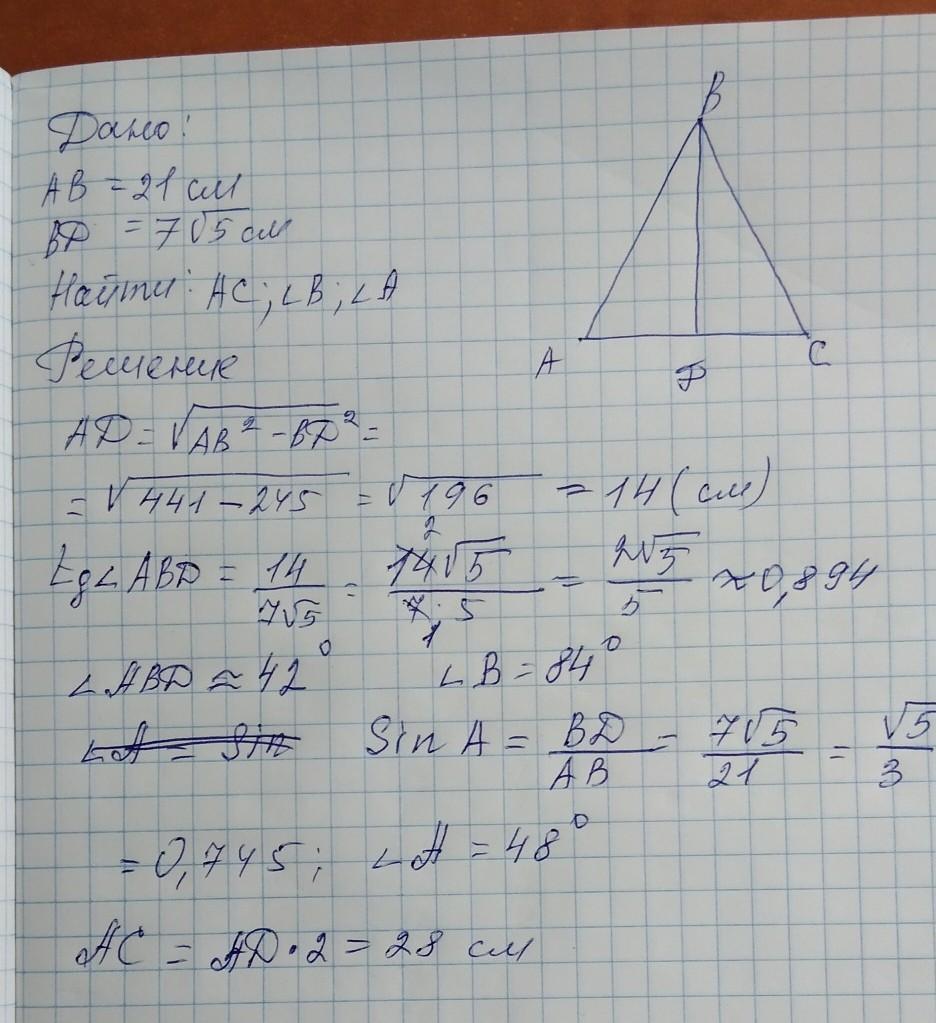 Дано:
AB = 21 см
BD = 7√5 см
Найти: AC; ∠B; ∠A
Решение
AD = √AB² - BD² =
= √441 - 245 = √196 = 14 (см)
tg∠ABD = 14/7√5 = 14√5/7·5 = 2√5/5 ≈ 0,894
2
1
∠ABD ≈ 42° ∠B = 84°
∠A = Sin Sin A = BD/AB = 7√5/21 = √5/3
= 0,745; ∠A = 48°
AC = AD · 2 = 28 см
B
A
D
C